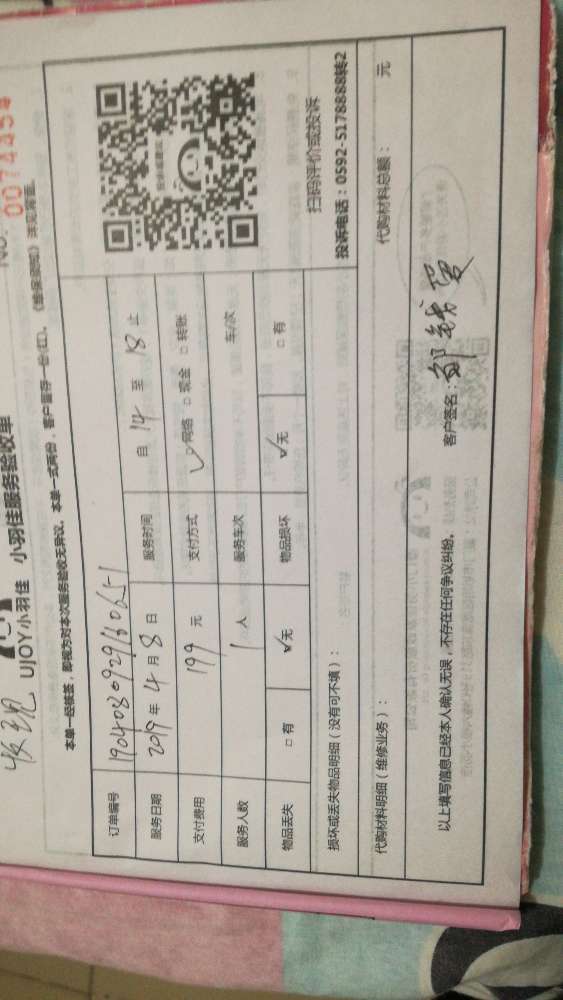 UJOY小羽佳 小羽佳服务验收单
NO. 0074454
本单一经核签，即视为对本次服务验收无异议。本单一式两份，客户留存一份
订单编号
服务日期 2019年4月8日 服务时间 自 14 至 18 止
支付费用 199 元 支付方式 ☑网络 □现金 □转账
服务人数 1 人 服务车次 车/次
物品丢失 □有 ☑无 物品损坏 ☑无 □有
扫码评价或投诉
投诉电话：0592-5178888转2
损坏或丢失物品明细（没有可不填）：
代购材料明细（维修业务）： 代购材料总额： 元
以上填写信息已经本人确认无误，不存在任何争议纠纷。 客户签名：